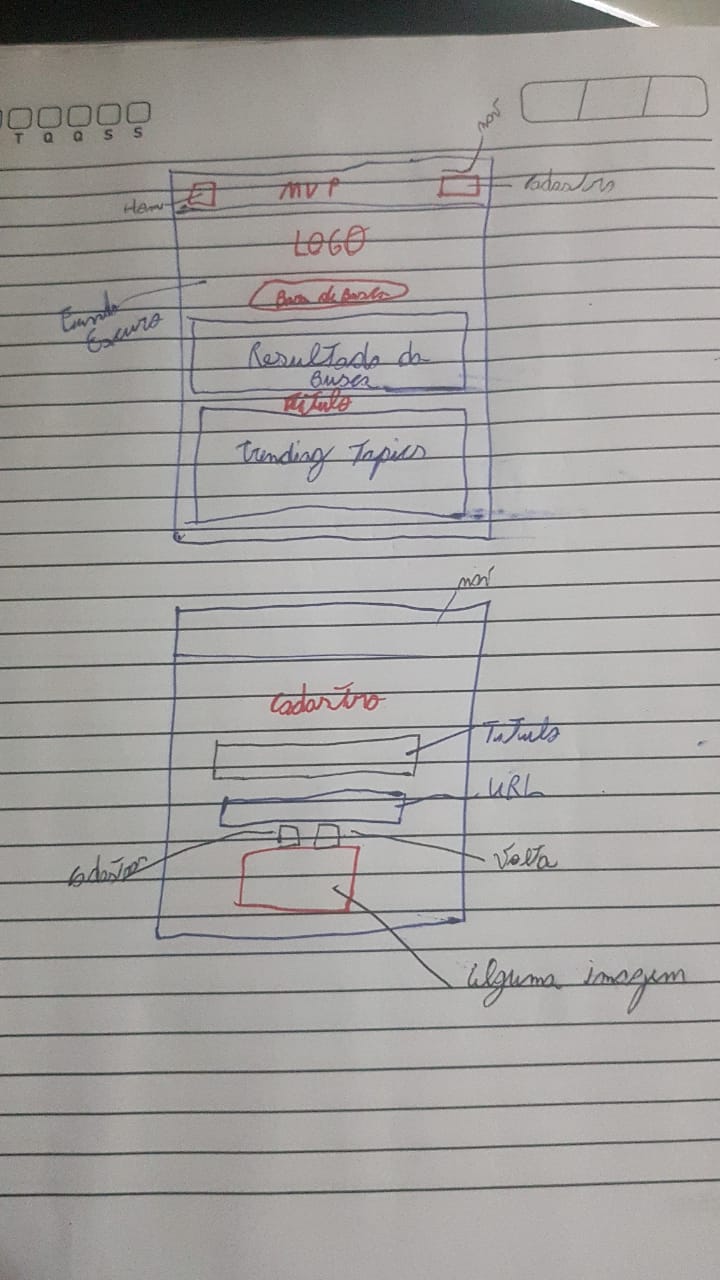 T Q Q S S
nav
MVP
Cadastro
Ham
LOGO
Barra de Busca
Fundo
Escuro
Resultado da
Busca
Titulo
Trending Topics
nav
Cadastro
Titulo
URL
Cadastrar
Volta
Alguma imagem